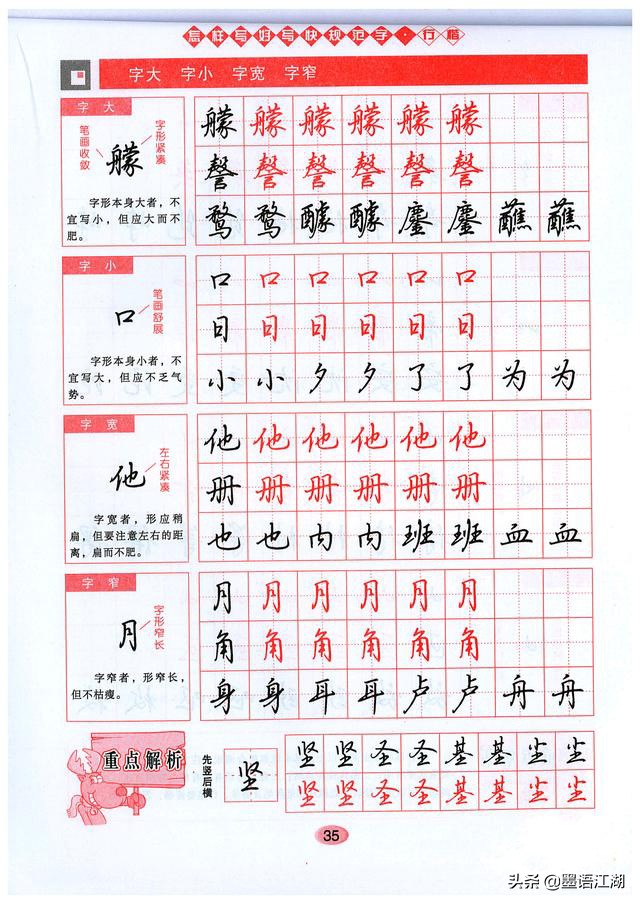 怎样写好写快规范字·行楷
字大 字小 字宽 字窄
字大
笔画收敛
艨
字形紧凑
字形本身大者，不
宜写小，但应大而不
肥。
艨 艨 艨 艨 艨 艨
謦 謦 謦 謦 謦 謦
醵 醵 鏖 鏖 蘸 蘸
字小
口
笔画舒展
字形本身小者，不
宜写大，但应不乏气
势。
口 口 口 口 口 口
日 日 日 日 日 日
小 小 夕 夕 了 了 为 为
字宽
他
左右紧凑
字宽者，形应稍
扁，但要注意左右的距
离，扁而不肥。
他 他 他 他 他 他
册 册 册 册 册 册
也 也 内 内 班 班 血 血
字窄
月
字形窄长
字窄者，形窄长，
但不枯瘦。
月 月 月 月 月 月
角 角 角 角 角 角
身 身 耳 耳 卢 卢 舟 舟
重点解析
先竖后横
坚
坚 坚 圣 圣 基 基 尘 尘
坚 坚 圣 圣 基 基 尘 尘
35
头条@墨语江湖